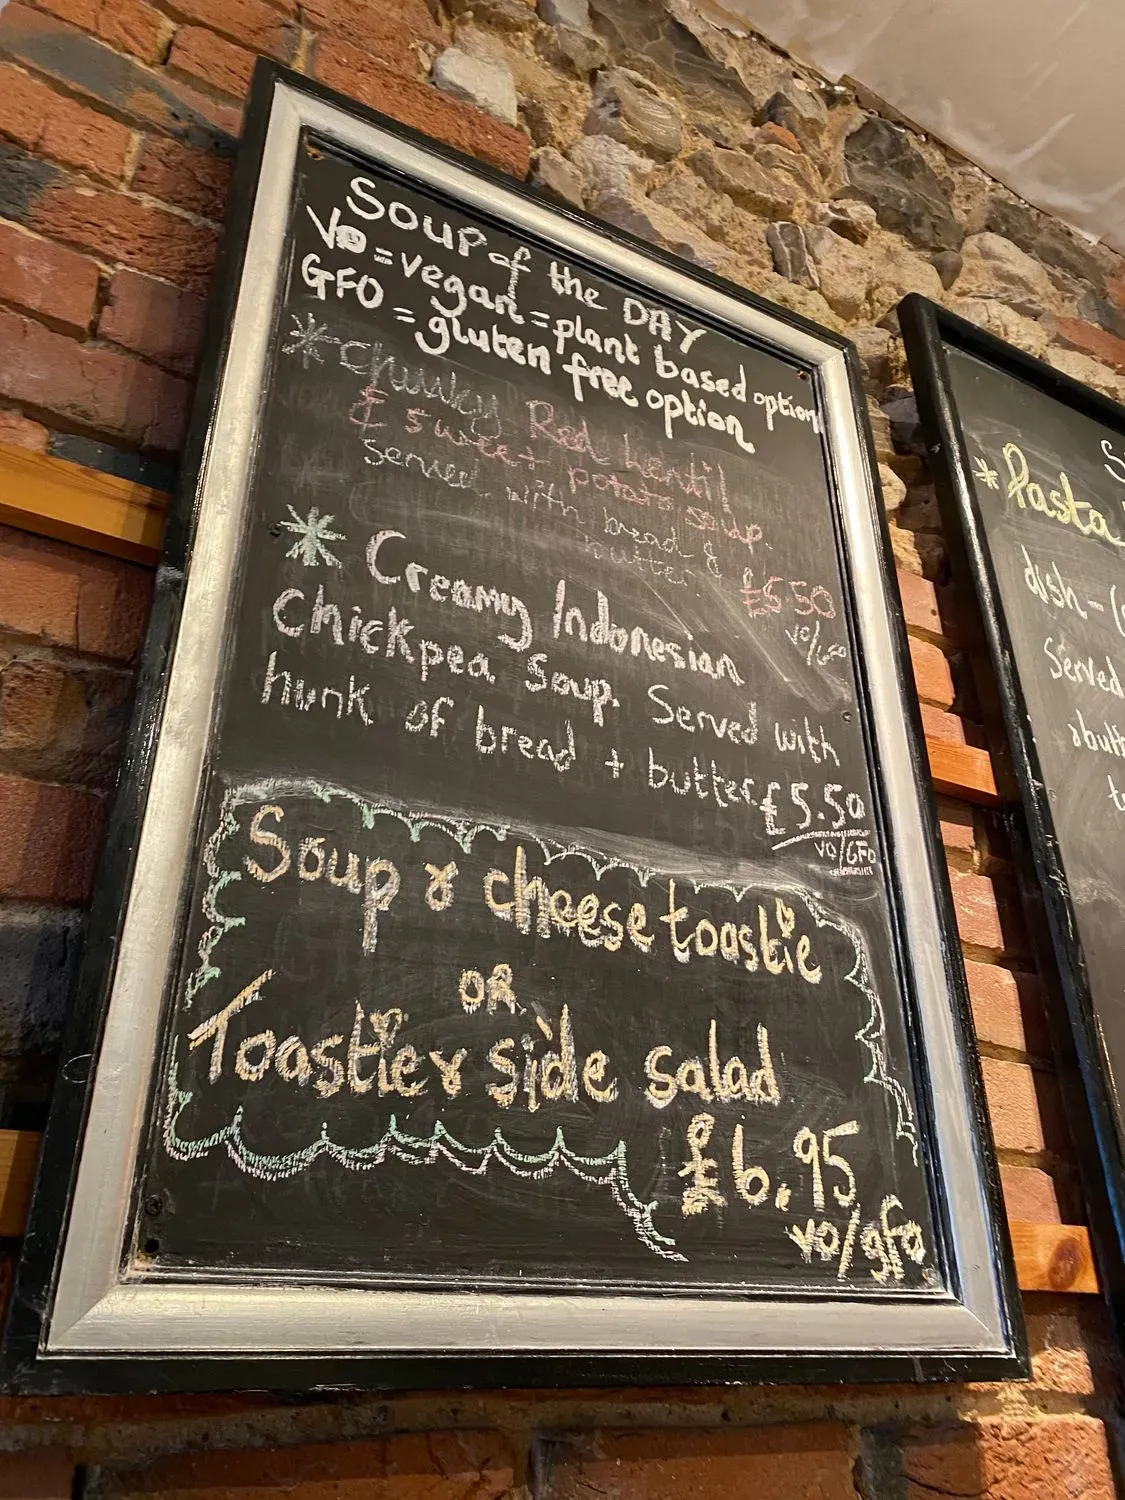 Soup of the DAY
VO = vegan = plant based option
GFO = gluten free option
* Chunky Red Lentil
& sweet potato soup.
served with bread &
butter
£5.50
VO/GFO
* Creamy Indonesian
Chickpea soup. Served with
hunk of bread + butter £5.50
VO/GFO
Soup & cheese toastie
OR
Toastie & side salad
£6.95
vo/gfo
* Pasta
dish - (
Served